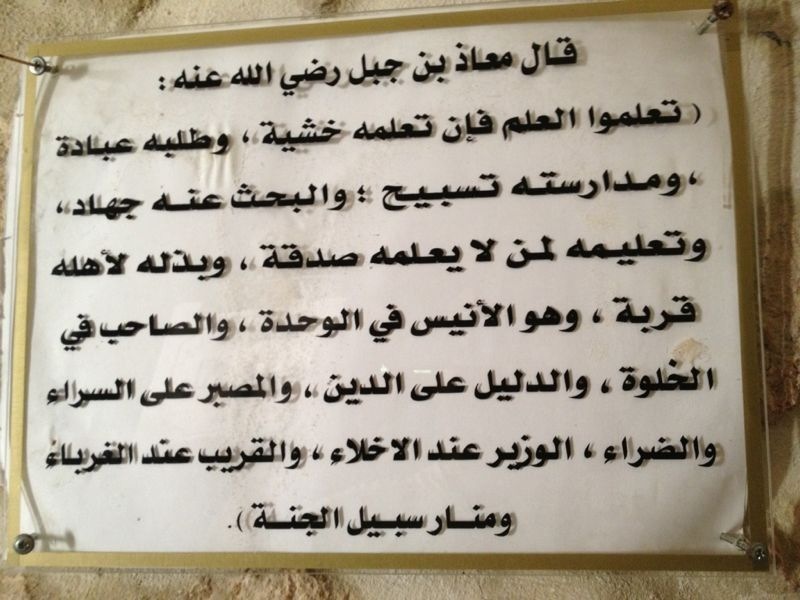 قال معاذ بن جبل رضي الله عنه :
( تعلموا العلم فإن تعلمه خشية ، وطلبه عبادة
، ومدارسته تسبيح ؛ والبحث عنه جهاد ،
وتعليمه لمن لا يعلمه صدقة ، وبذله لأهله
قربة ، وهو الأنيس في الوحدة ، والصاحب في
الخلوة ، والدليل على الدين ، والمصبر على السراء
والضراء ، الوزير عند الاخلاء ، والقريب عند الغرباء
ومنار سبيل الجنة ).